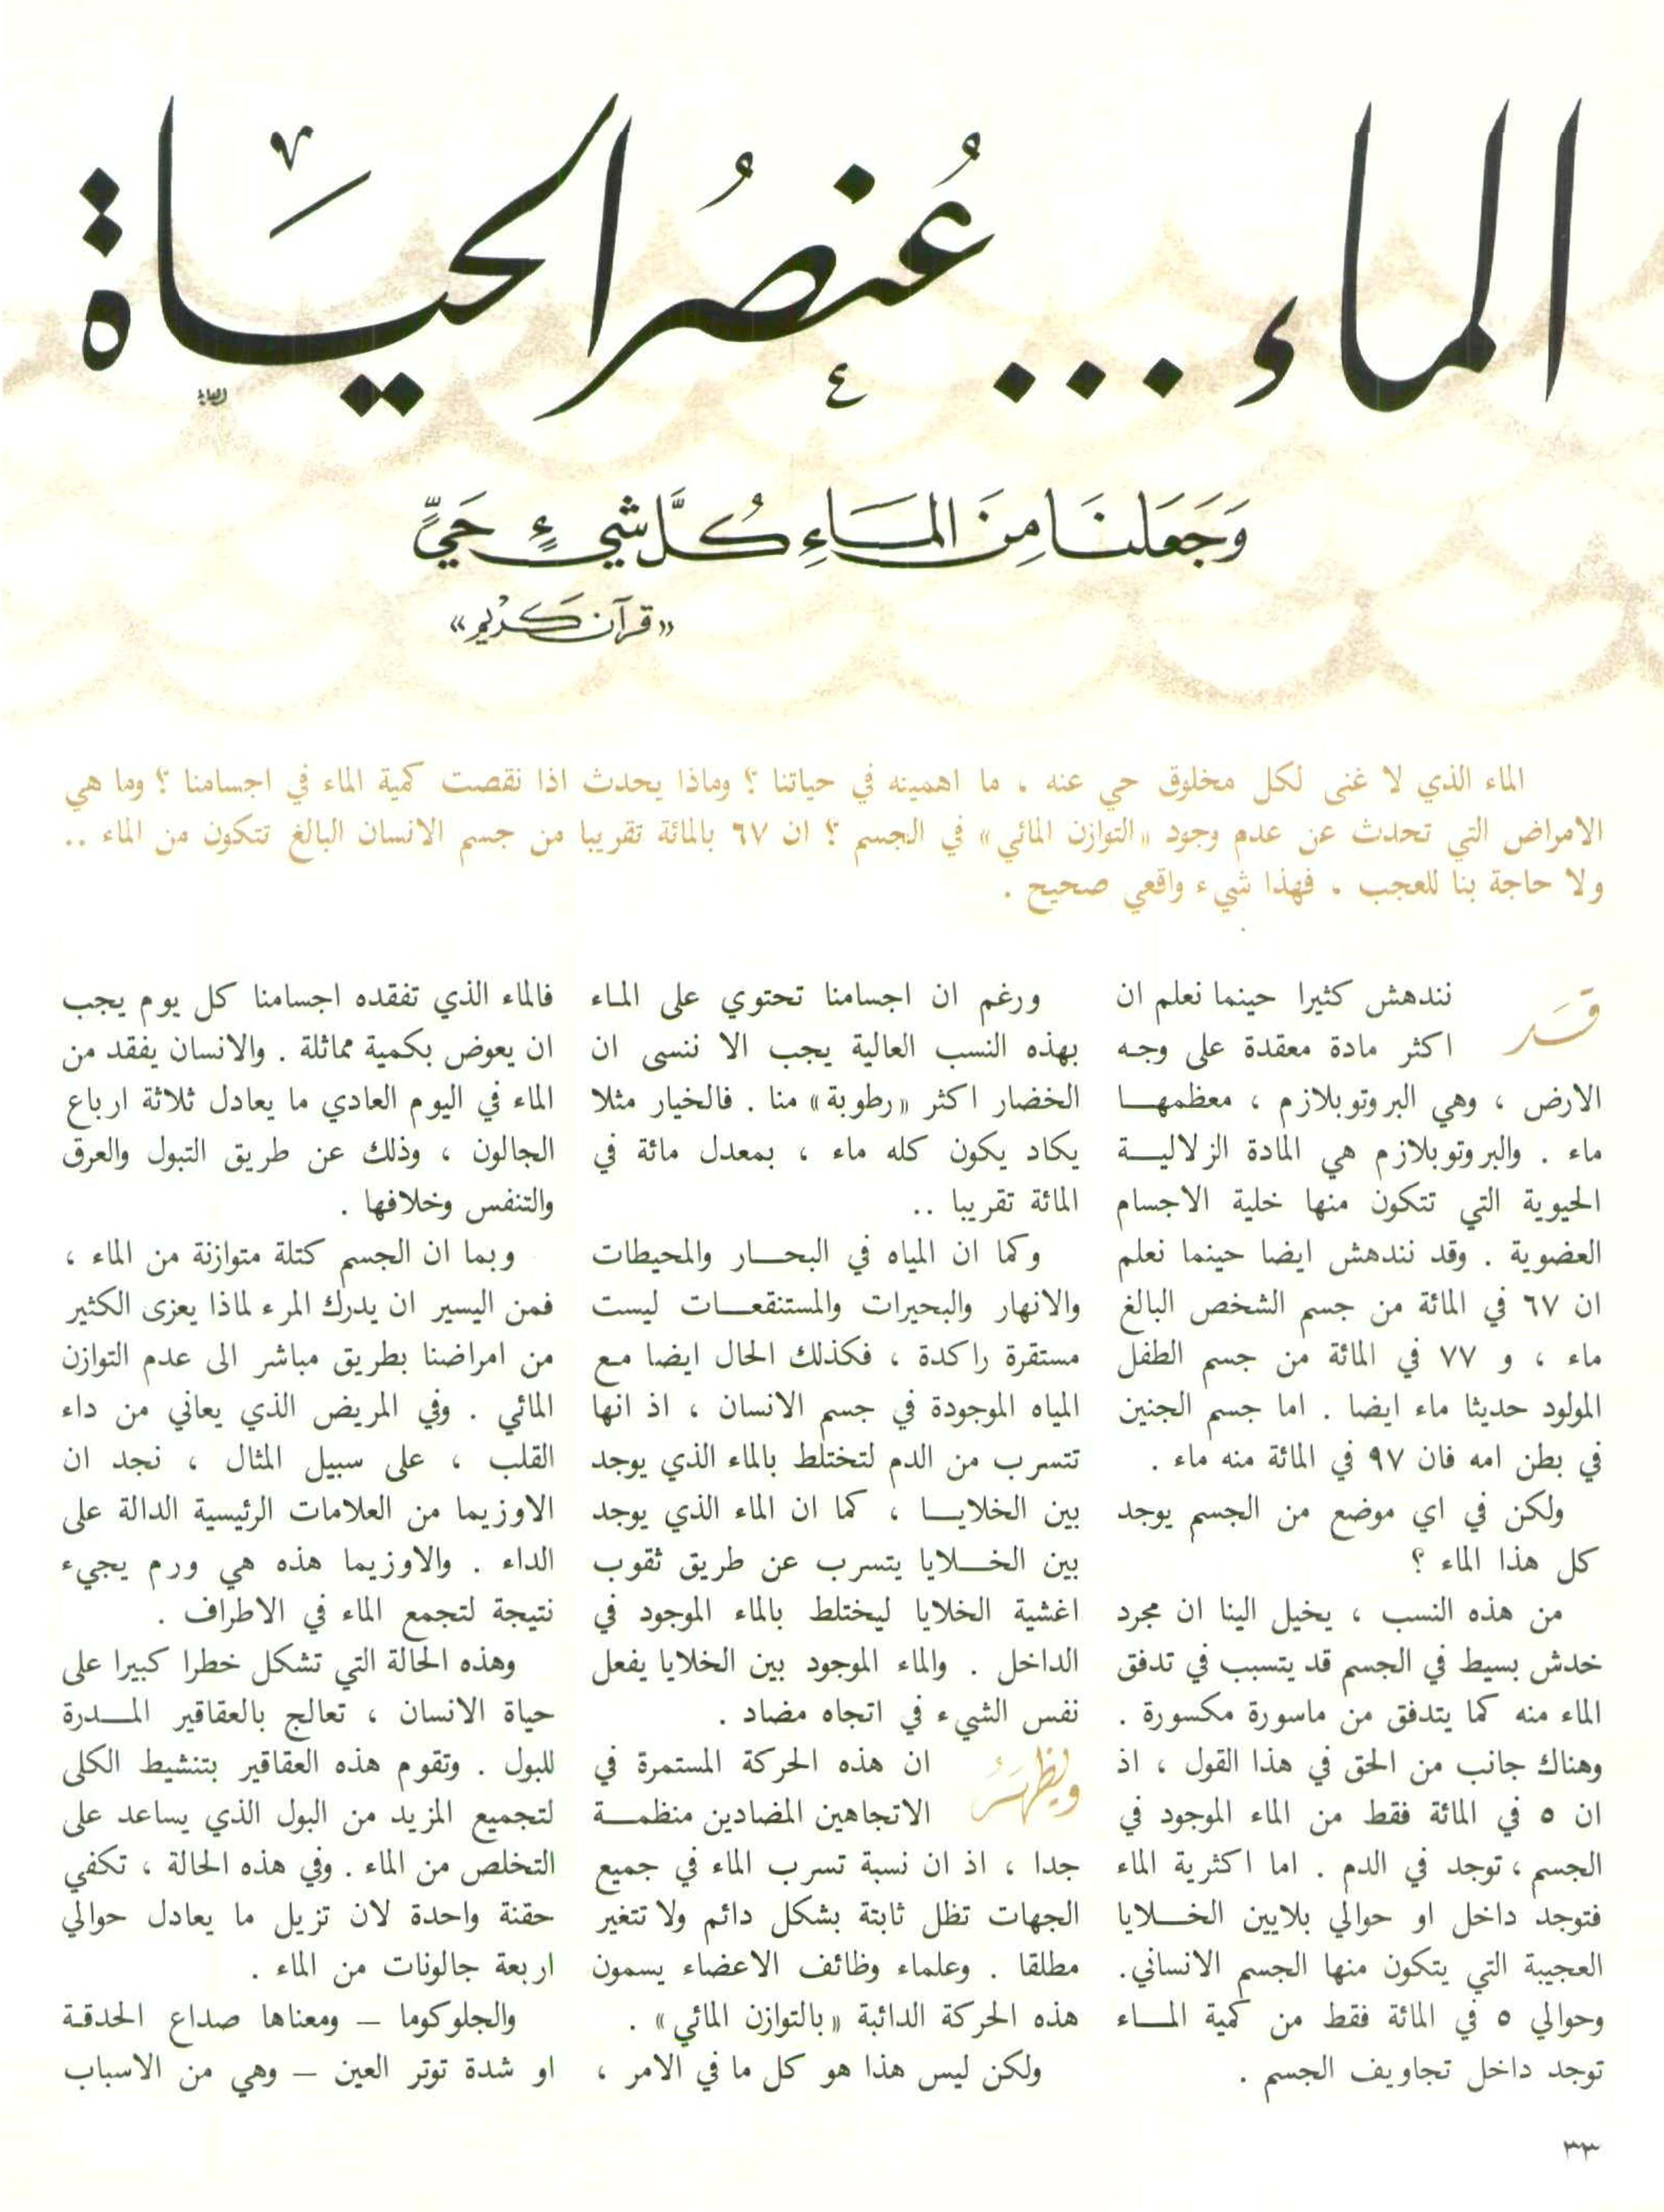 الماء ... عُنصرُ الحيَاة
وَجَعَلنَا مِنَ المَاءِ كُلَّ شَيءٍ حَيٍّ
«قرآن كَريْم»
الماء الذي لا غنى لكل مخلوق حي عنه ، ما اهميته في حياتنا ؟ وماذا يحدث اذا نقصت كمية الماء في اجسامنا ؟ وما هي
الامراض التي تحدث عن عدم وجود «التوازن المائي» في الجسم ؟ ان ٦٧ بالمائة تقريبا من جسم الانسان البالغ تتكون من الماء ..
ولا حاجة بنا للعجب ، فهذا شيء واقعي صحيح .
قَد نندهش كثيرا حينما نعلم ان
اكثر مادة معقدة على وجه
الارض ، وهي البروتوبلازم ، معظمها
ماء . والبروتوبلازم هي المادة الزلالية
الحيوية التي تتكون منها خلية الاجسام
العضوية . وقد نندهش ايضا حينما نعلم
ان ٦٧ في المائة من جسم الشخص البالغ
ماء ، و ٧٧ في المائة من جسم الطفل
المولود حديثا ماء ايضا . اما جسم الجنين
في بطن امه فان ٩٧ في المائة منه ماء .
ولكن في اي موضع من الجسم يوجد
كل هذا الماء ؟
من هذه النسب ، يخيل الينا ان مجرد
خدش بسيط في الجسم قد يتسبب في تدفق
الماء منه كما يتدفق من ماسورة مكسورة .
وهناك جانب من الحق في هذا القول ، اذ
ان ٥ في المائة فقط من الماء الموجود في
الجسم ، توجد في الدم . اما اكثرية الماء
فتوجد داخل او حوالي بلايين الخلايا
العجيبة التي يتكون منها الجسم الانساني.
وحوالي ٥ في المائة فقط من كمية الماء
توجد داخل تجاويف الجسم .
ورغم ان اجسامنا تحتوي على الماء
بهذه النسب العالية يجب الا ننسى ان
الخضار اكثر «رطوبة» منا . فالخيار مثلا
يكاد يكون كله ماء ، بمعدل مائة في
المائة تقريبا ..
وكما ان المياه في البحار والمحيطات
والانهار والبحيرات والمستنقعات ليست
مستقرة راكدة ، فكذلك الحال ايضا مع
المياه الموجودة في جسم الانسان ، اذ انها
تتسرب من الدم لتختلط بالماء الذي يوجد
بين الخلايا ، كما ان الماء الذي يوجد
بين الخلايا يتسرب عن طريق ثقوب
اغشية الخلايا ليختلط بالماء الموجود في
الداخل . والماء الموجود بين الخلايا يفعل
نفس الشيء في اتجاه مضاد .
ويظهَرُ ان هذه الحركة المستمرة في
الاتجاهين المضادين منظمة
جدا ، اذ ان نسبة تسرب الماء في جميع
الجهات تظل ثابتة بشكل دائم ولا تتغير
مطلقا . وعلماء وظائف الاعضاء يسمون
هذه الحركة الدائبة «بالتوازن المائي» .
ولكن ليس هذا هو كل ما في الامر ،
فالماء الذي تفقده اجسامنا كل يوم يجب
ان يعوض بكمية مماثلة . والانسان يفقد من
الماء في اليوم العادي ما يعادل ثلاثة ارباع
الجالون ، وذلك عن طريق التبول والعرق
والتنفس وخلافها .
وبما ان الجسم كتلة متوازنة من الماء ،
فمن اليسير ان يدرك المرء لماذا يعزى الكثير
من امراضنا بطريق مباشر الى عدم التوازن
المائي . وفي المريض الذي يعاني من داء
القلب ، على سبيل المثال ، نجد ان
الاوزيما من العلامات الرئيسية الدالة على
الداء . والاوزيما هذه هي ورم يجيء
نتيجة لتجمع الماء في الاطراف .
وهذه الحالة التي تشكل خطرا كبيرا على
حياة الانسان ، تعالج بالعقاقير المدرة
للبول . وتقوم هذه العقاقير بتنشيط الكلى
لتجميع المزيد من البول الذي يساعد على
التخلص من الماء . وفي هذه الحالة ، تكفي
حقنة واحدة لان تزيل ما يعادل حوالي
اربعة جالونات من الماء .
والجلوكوما – ومعناها صداع الحدقة
او شدة توتر العين – وهي من الاسباب
٣٣